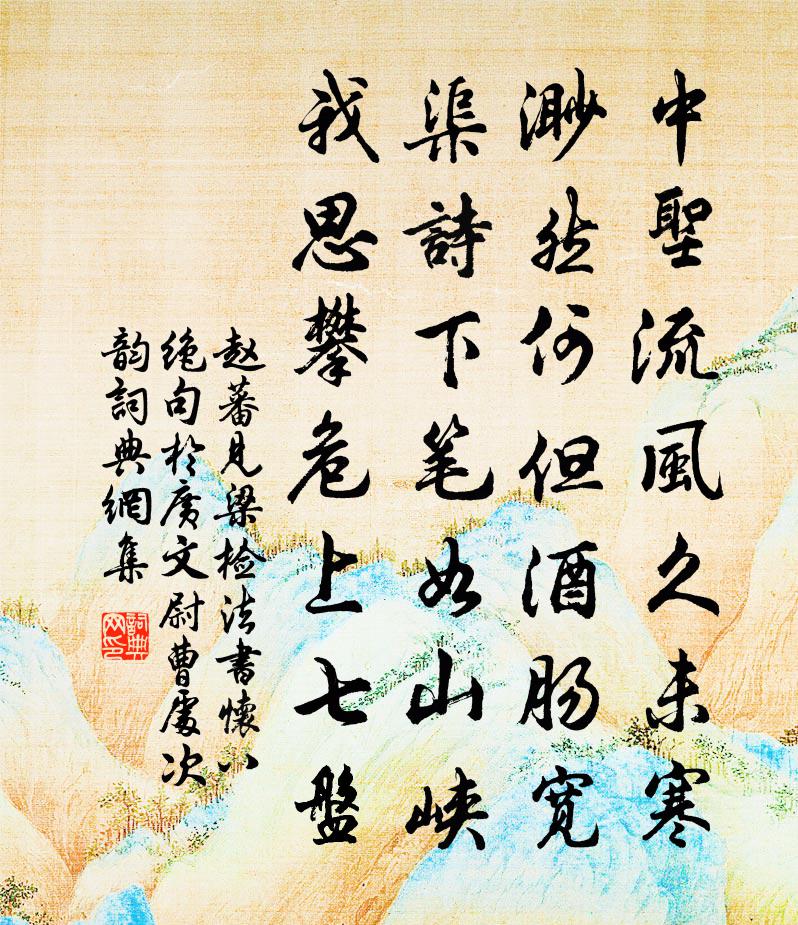 中聖流風久未寒
渺然何但酒肠寬
渠詩下笔如山峡
我思攀危上七盤
赵蕃見梁檢法書懷八
絶句於廣文尉曹處次
韵詞典網集
詞典
网印